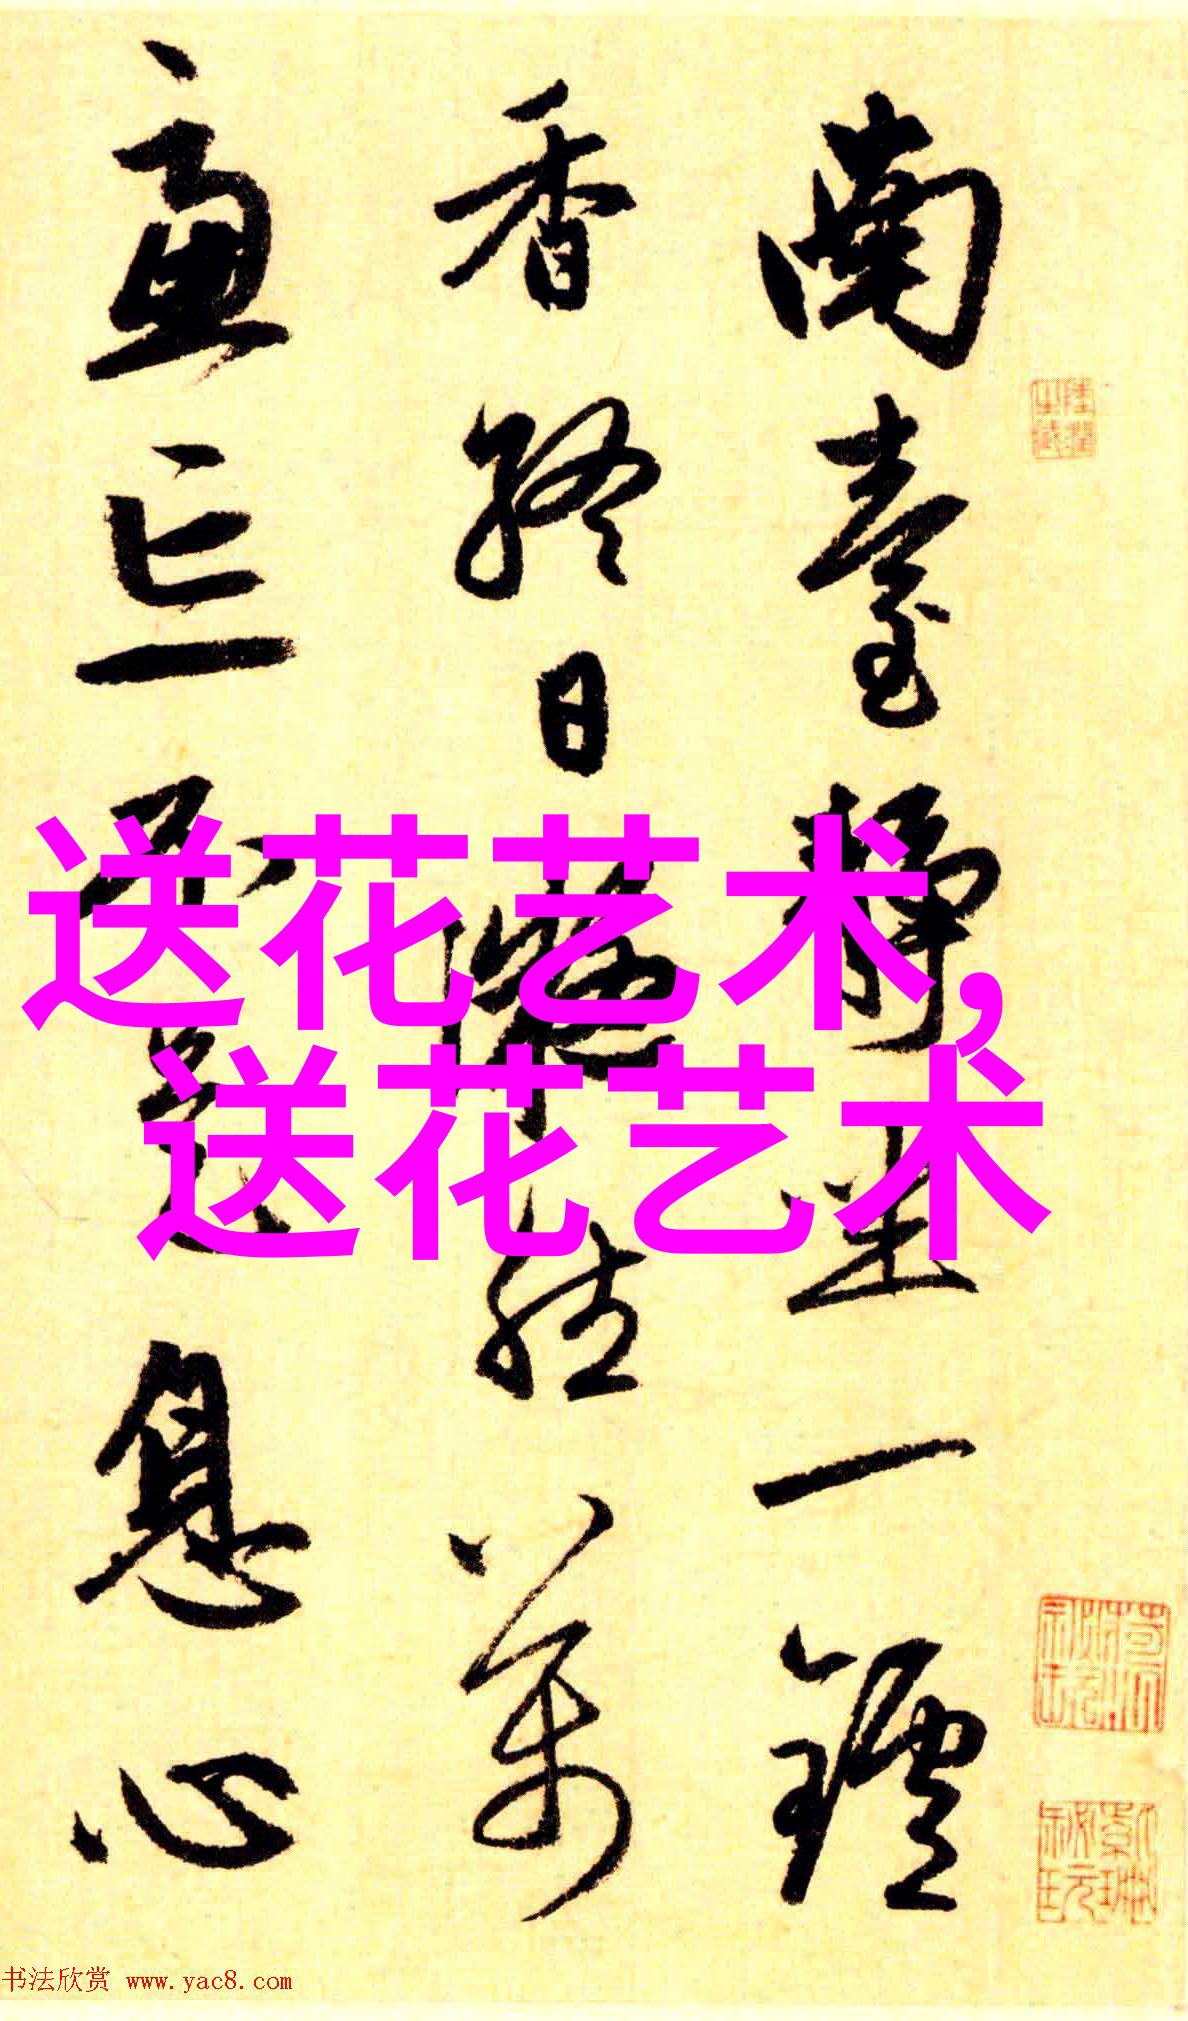 南臺靜坐一鑪
香終日凝然萬
慮忘不是息心
送花艺术,
送花艺术
书法欣赏 www.yac8.com